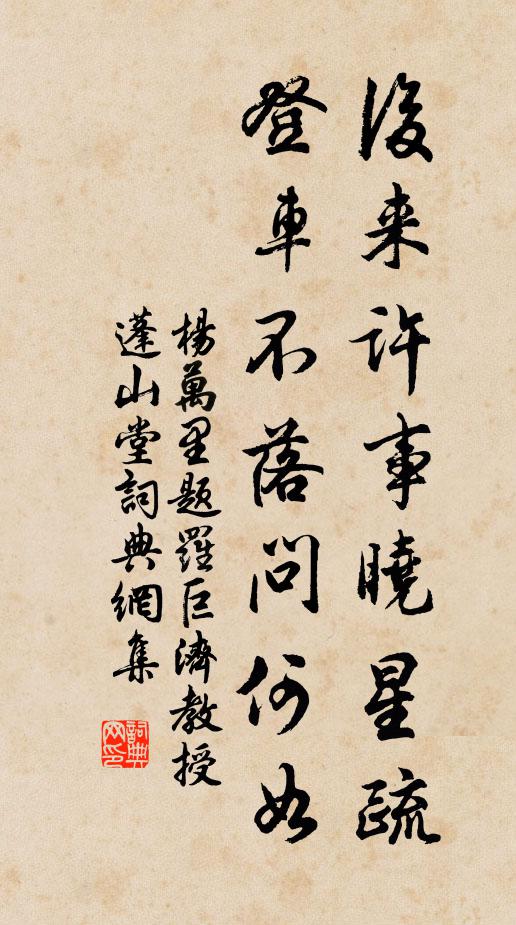 後来許事曉星疏
登車不落問何如
楊萬里題羅巨濟教授
蓬山堂詞典網集
詞典网印